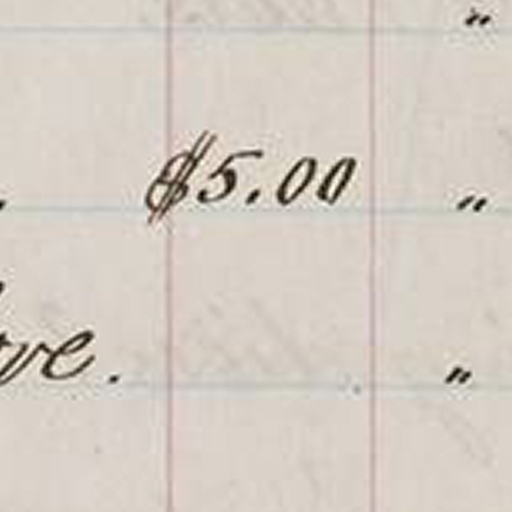 "
. $5.00 "
ve. "